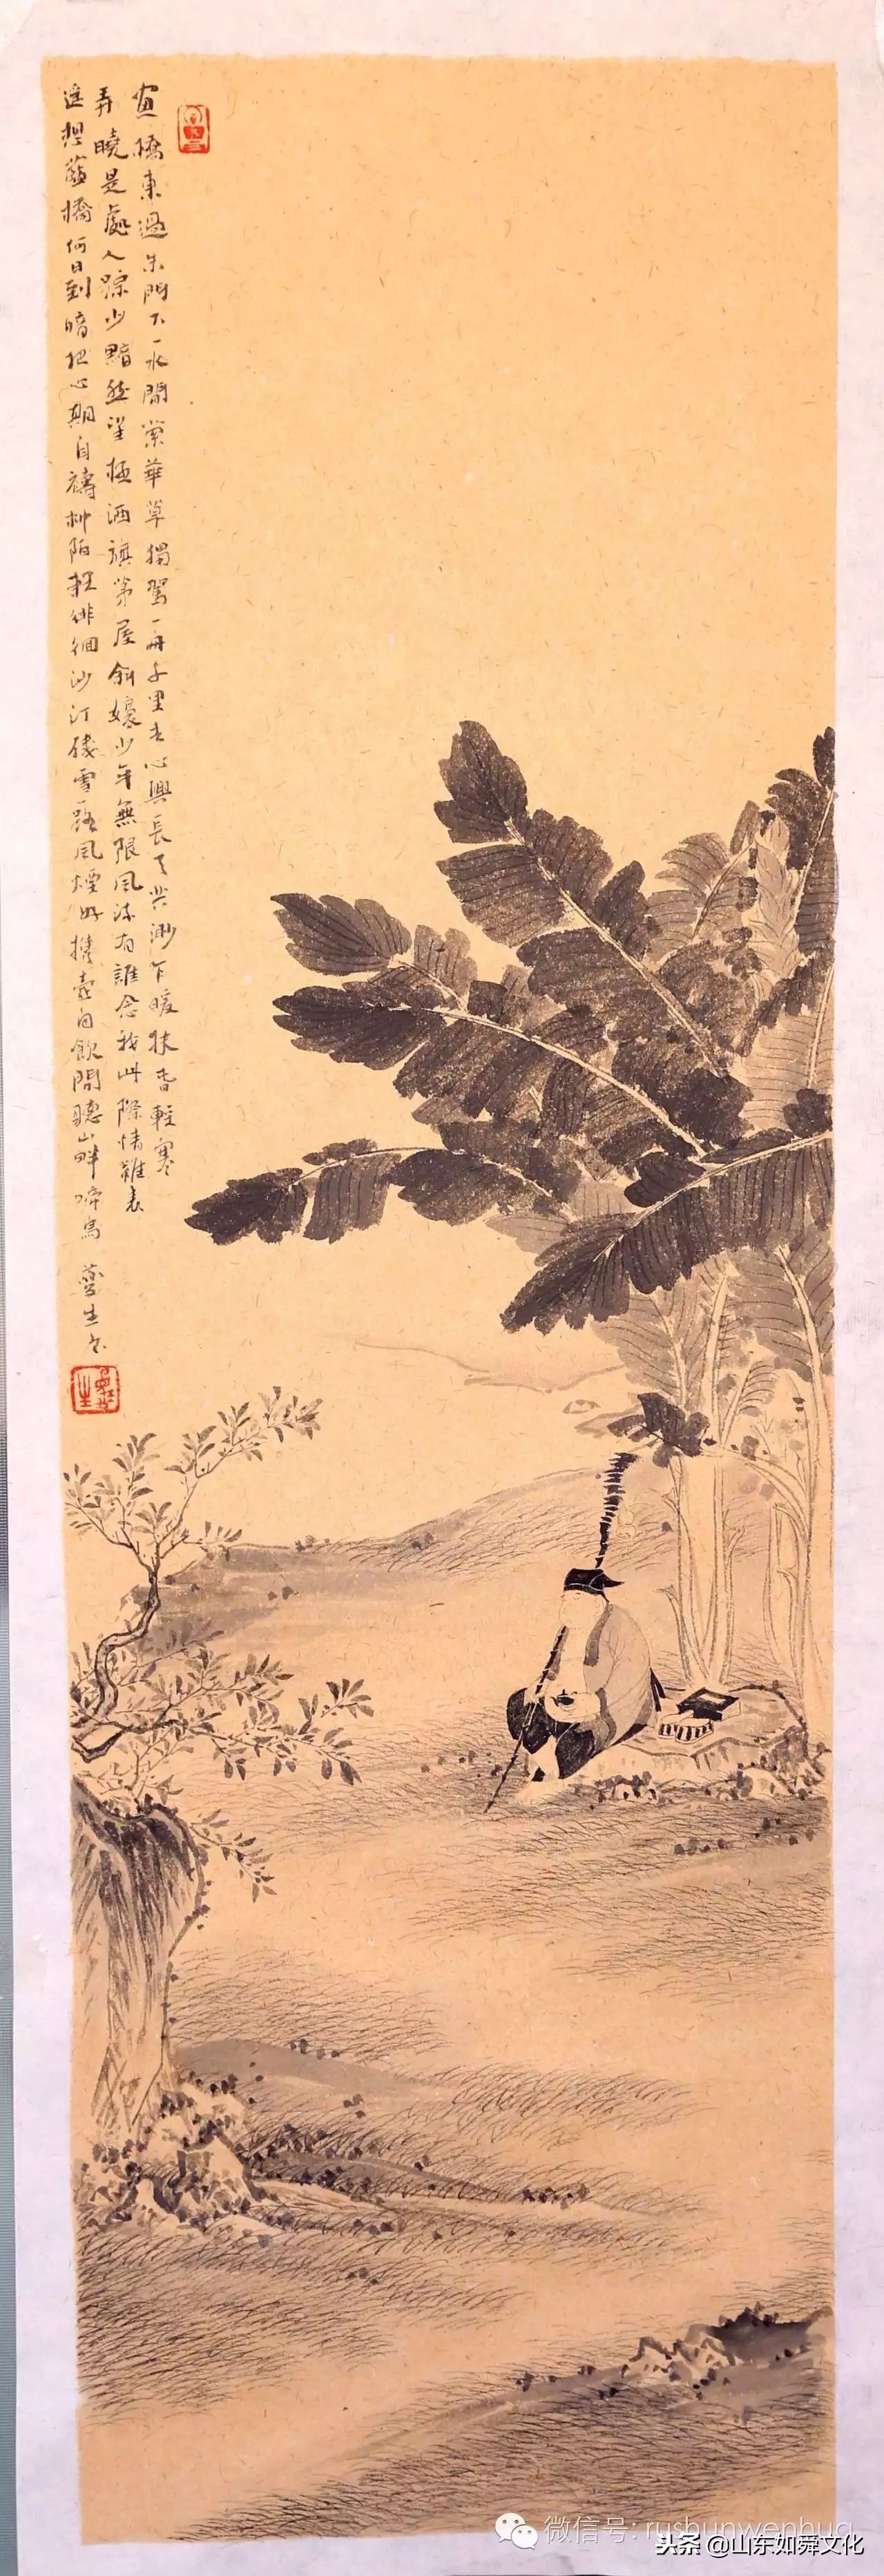 画桥东过朱門下一水閒縈華草獨駕一舟千里去心與長天共渺乍暖扶春輕寒
弄曉是處人踪少黯然望極酒旗茅屋斜嫋少年無限風流有誰念我此際情難表
遥想藍橋何日到暗把心期自禱柳陌輕徘徊沙汀殘雪一路風煙好攜壺自飲閒聽山畔啼鳥
微信号: rushunwenhua
头条 @山东如舜文化